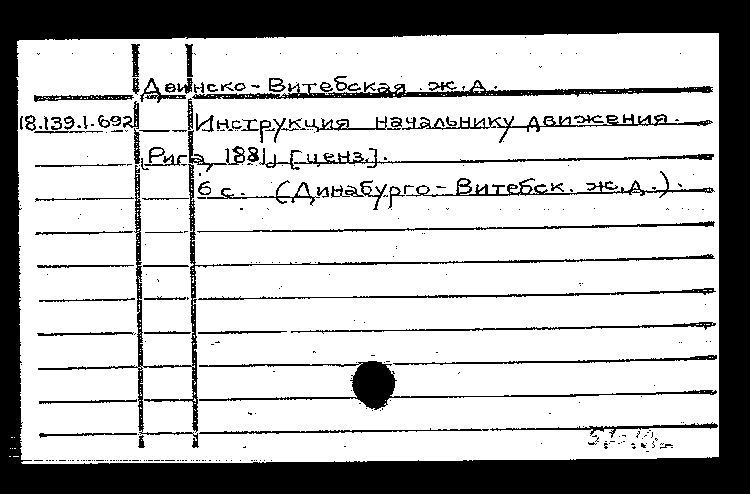 Двинско-Витебская ж.д.
18.139.1.692 Инструкция начальнику движения.
[Рига, 1881, [ценз].
6 с. (Динабурго-Витебск. ж.д.).